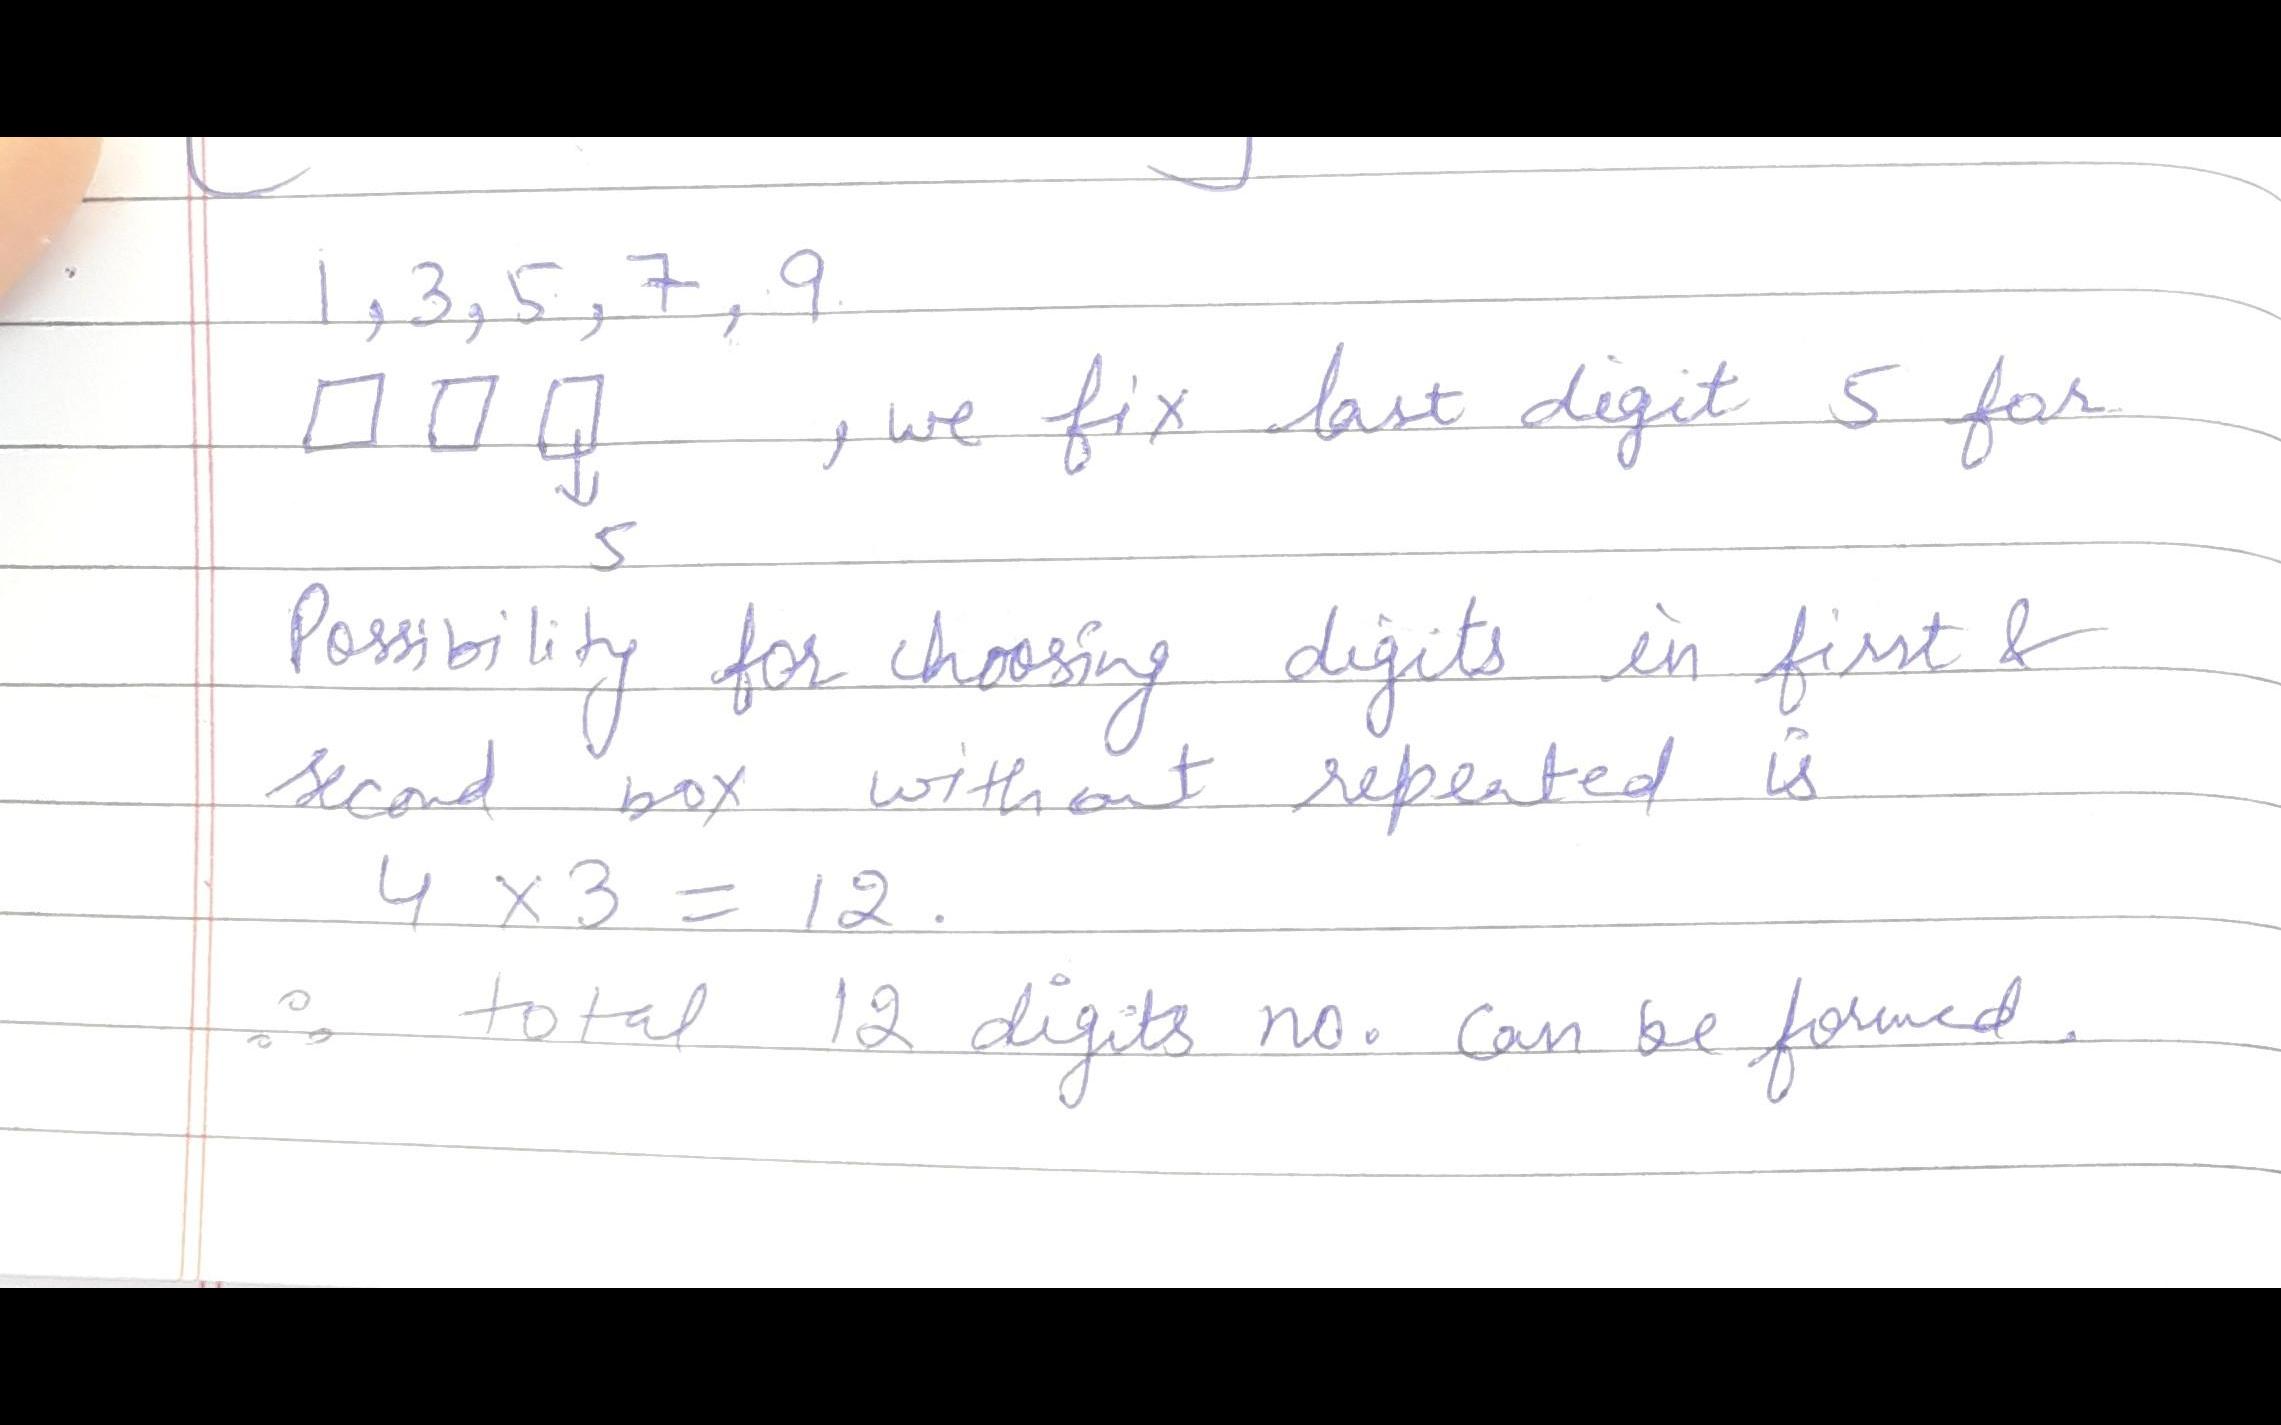 1, 3, 5, 7, 9
, we fix last digit 5 for
5
Possibility for choosing digits in first &
second box without repeated is
4 × 3 = 12.
∴ total 12 digits no. can be formed.